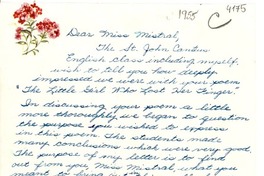 1955 C 4175
Dear Miss Mistral,
The St. John Cantius
English Class including myself,
wish to tell you how deeply
impressed we were with your poem
"The Little Girl Who Lost Her Finger".
In discussing your poem a little
more thoroughly, we began to question
the purpose you wished to express
in this poem. The students made
many conclusions which were very good.
The purpose of my letter is to find
out from you Miss Mistral, what you
meant to